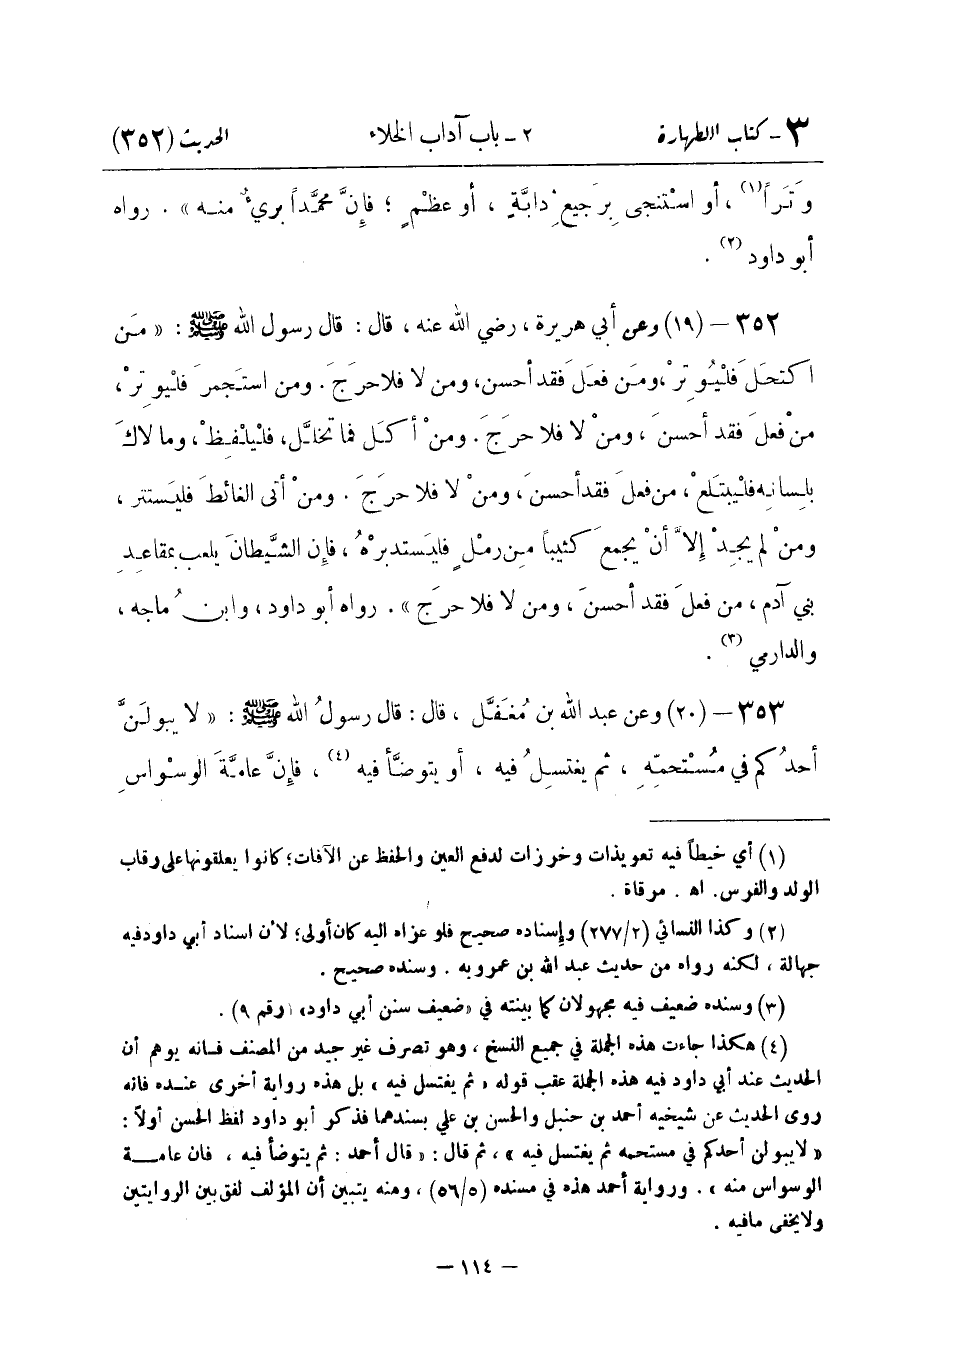 ٣ - كتاب الطهارة ٢ - باب آداب الخلاء الحديث (٣٥٢)
وَتَراً(١) ، أو استْنجى بِرَجيعِ دابَّةٍ ، أو عظمٍ ؛ فإنَّ محمَّداً بريءٌ منه » . رواه
أبو داود (٢) .
٣٥٢ – (١٩) وعن أبي هريرة ، رضي الله عنه ، قال : قال رسول الله ﷺ : « مَن
اكتحَلَ فَلْيُوتِرْ ، ومَن فعلَ فقد أحسن ، ومن لا فلا حرَجَ . ومن استجمرَ فليوتِرْ ،
منْ فعلَ فقد أحسنَ ، ومنْ لا فلا حرَجَ . ومنْ أكلَ فما تخلَّل ، فليلفِظْ ، وما لاكَ
بلسانِه فليبتلعْ ، من فعلَ فقد أحسنَ ، ومنْ لا فلا حرَجَ . ومنْ أتى الغائطَ فليَستتر ،
ومنْ لم يجِدْ إلاَّ أنْ يجمعَ كثيباً من رملٍ فليَستدبرْهُ ، فإن الشَّيطانَ يلعب بمقاعِدِ
بني آدم ، من فعلَ فقد أحسنَ ، ومن لا فلا حرَج » . رواه أبو داود ، وابنُ ماجه ،
والدارمي (٣) .
٣٥٣ – (٢٠) وعن عبد الله بن مُغفَّل ، قال : قال رسولُ الله ﷺ : « لا يبولَنَّ
أحدُكم في مُستْحمِّهِ ، ثم يغتسلُ فيه ، أو يتوضَّأ فيه (٤) ، فإنَّ عامَّةَ الوسْواسِ
(١) أي خيطاً فيه تعويذات وخرزات لدفع العين والحفظ عن الآفات ؛ كانوا يعلقونها على رقاب
الولد والفرس . اه . مرقاة .
(٢) وكذا النسائي (٢/٢٧٧) وإسناده صحيح فلو عزاه اليه كان أولى ؛ لأن اسناد أبي داود فيه
جهالة ، لكنه رواه من حديث عبد الله بن عمرو به . وسنده صحيح .
(٣) وسنده ضعيف فيه مجهولان كما بينته في «ضعيف سنن أبي داود» (رقم ٩) .
(٤) هكذا جاءت هذه الجملة في جميع النسخ ، وهو تصرف غير جيد من المصنف فانه يوهم أن
الحديث عند أبي داود فيه هذه الجملة عقب قوله « ثم يغتسل فيه » بل هذه رواية أخرى عنده فانه
روى الحديث عن شيخيه أحمد بن حنبل والحسن بن علي بسندهما فذكر أبو داود لفظ الحسن أولاً :
« لا يبولن أحدكم في مستحمه ثم يغتسل فيه » ، ثم قال : « قال أحمد : ثم يتوضأ فيه ، فان عامة
الوسواس منه » . ورواية أحمد هذه في مسنده (٥/٥٦) ، ومنه يتبين أن المؤلف لفق بين الروايتين
ولا يخفى ما فيه .
– ١١٤ –